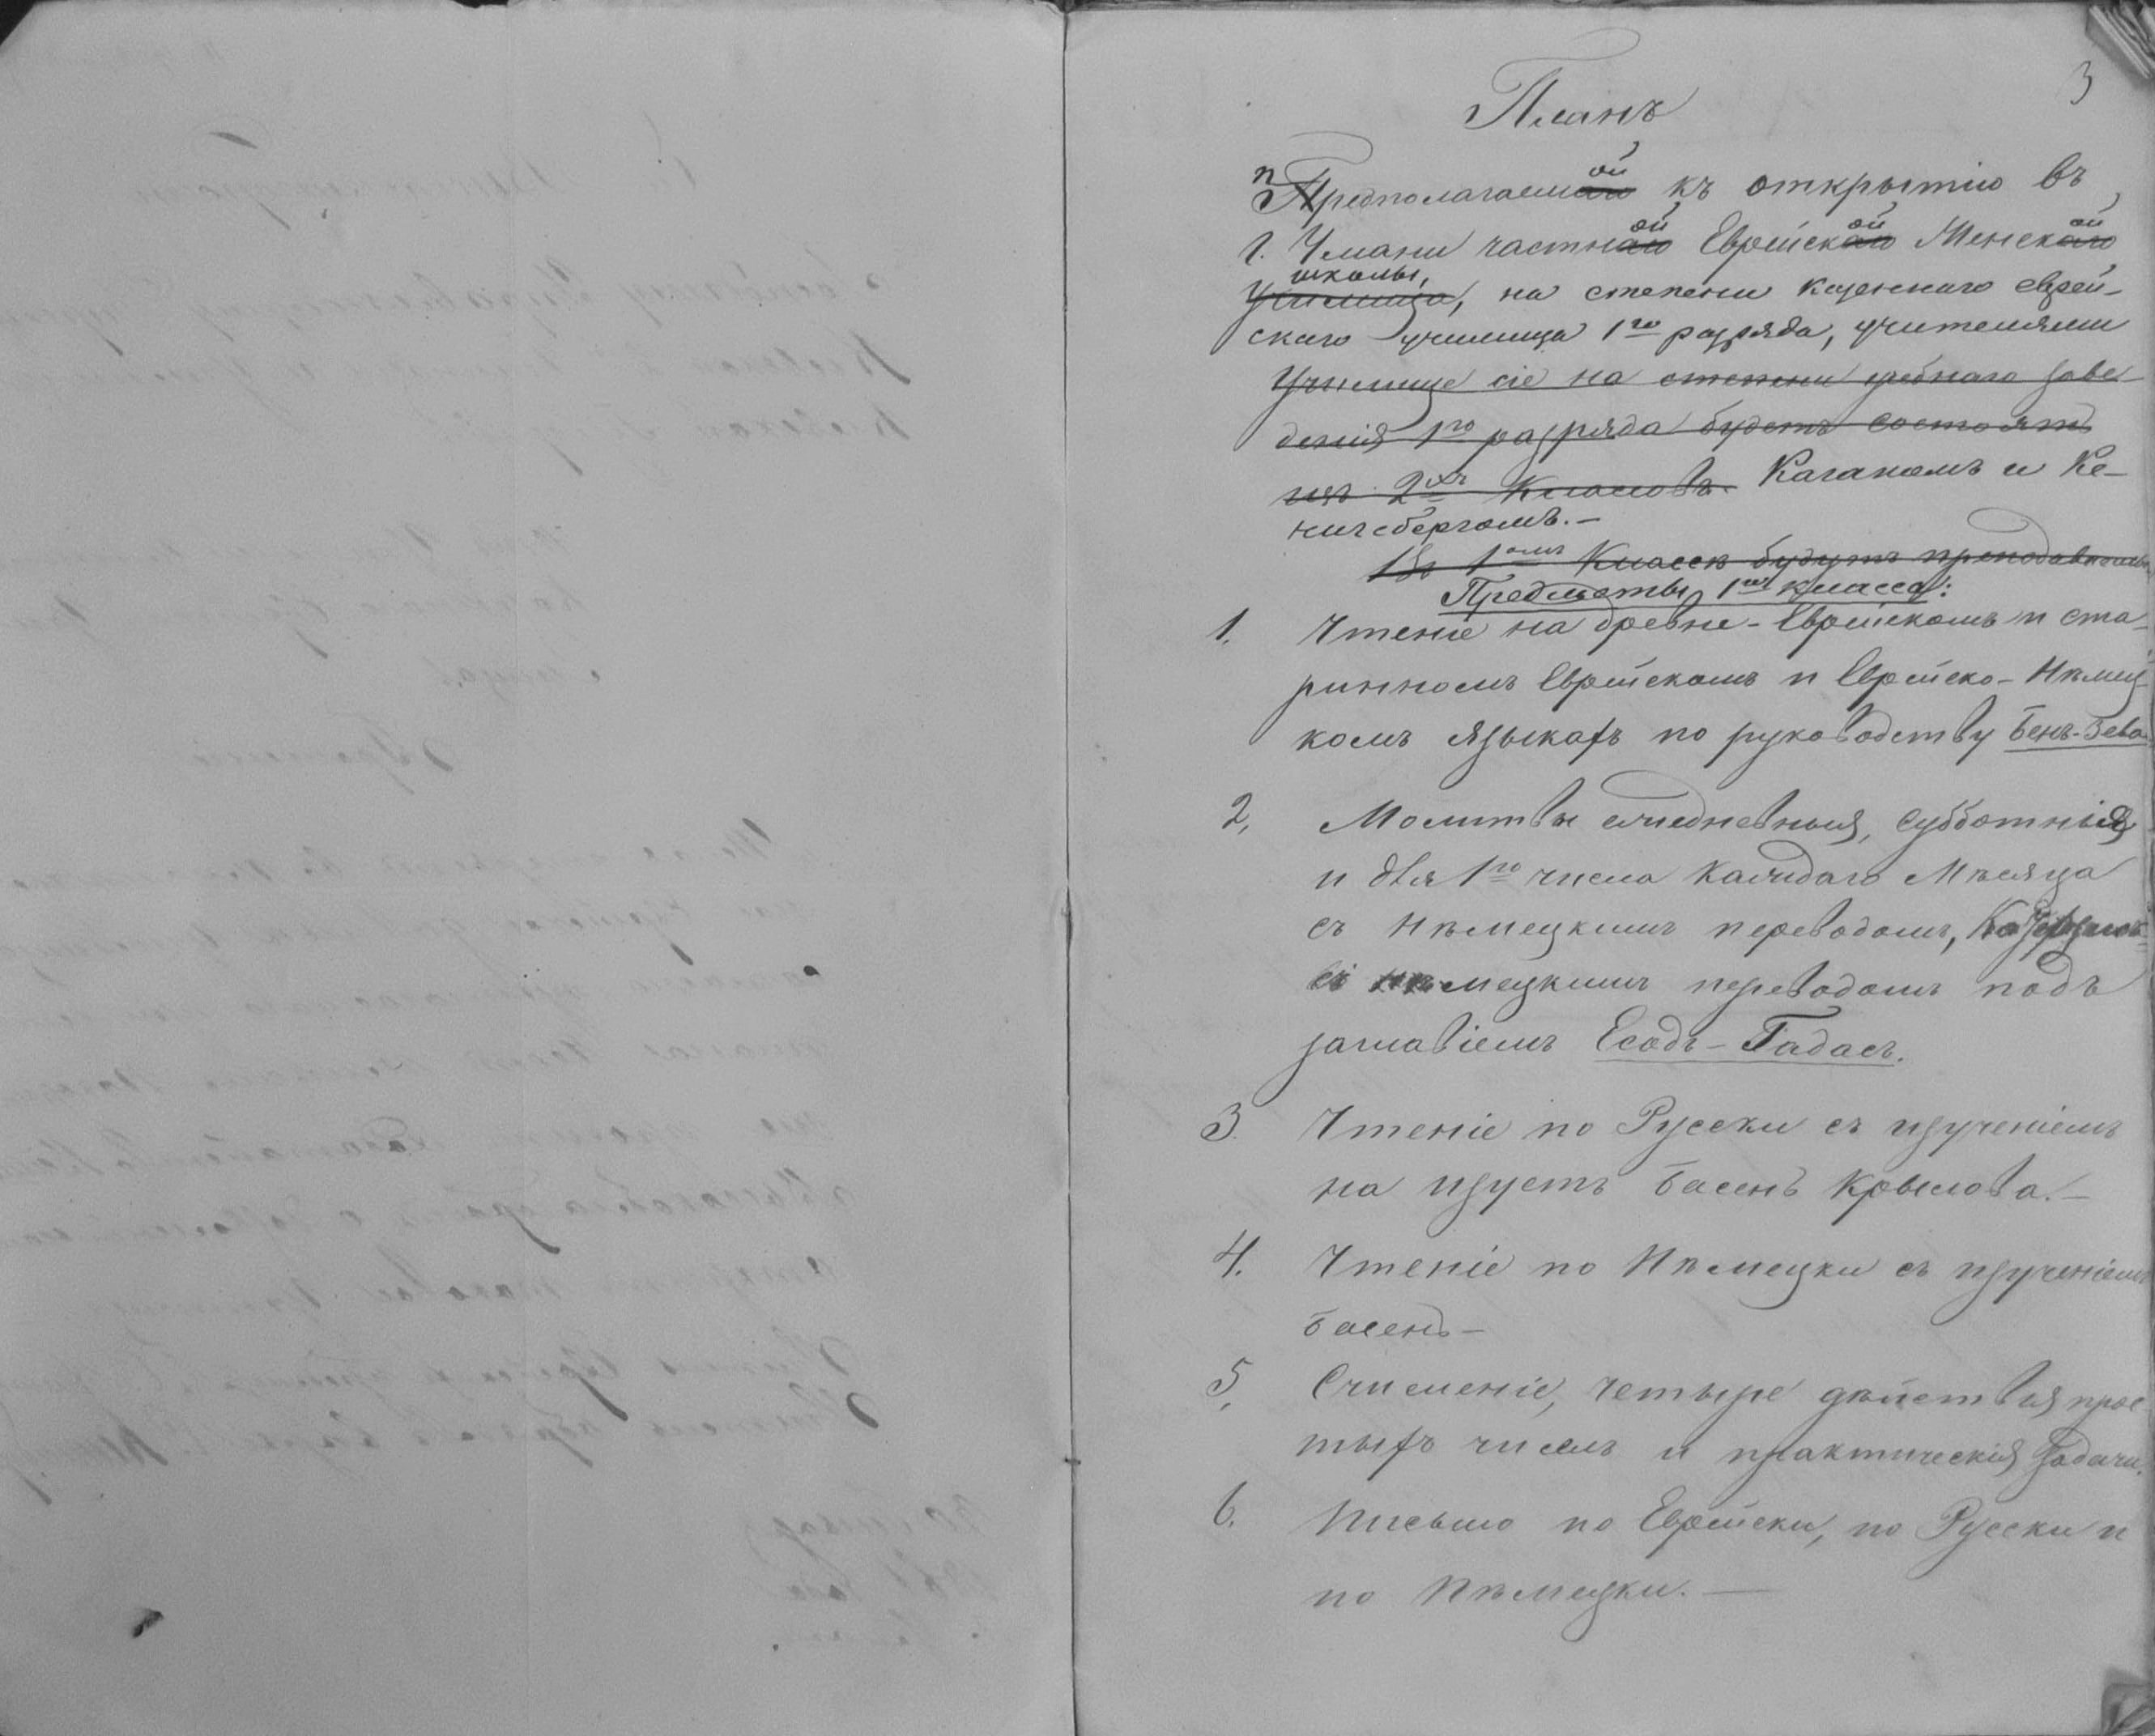 3
Планъ
предполагаемой къ открытію въ
г. Умани частной Еврейской Женской
школы, на степени казеннаго еврей-
скаго училища 1го разряда, учителями
Училище сіе на степени учебнаго заве-
денія 1го разряда будетъ состоять
изъ 2хъ Классовъ. Каганомъ и Ке-
нигсбергомъ.—
Въ 1омъ Классѣ будутъ преподаваться
Предметы 1го класса:
1. Чтеніе на древне-Еврейскомъ и ста-
ринномъ Еврейскомъ и Еврейско-Нѣмец-
комъ языкахъ по руководству Бенъ-Зева
2, Молитвы ежедневныя, субботнія
и для 1го числа каждаго Мѣсяца
съ Нѣмецкимъ переводомъ,
съ нѣмецкимъ переводомъ подъ
заглавіемъ Есодъ-Гадасъ.
3. Чтеніе по Русски съ изученіемъ
на изусть басенъ Крылова.—
4. Чтеніе по Нѣмецки съ изученіемъ
басенъ—
5, Счисленіе, четыре дѣйствія прос
тыхъ чиселъ и практическія задачи.
6. Письмо по Еврейски, по Русски и
по Нѣмецки.—